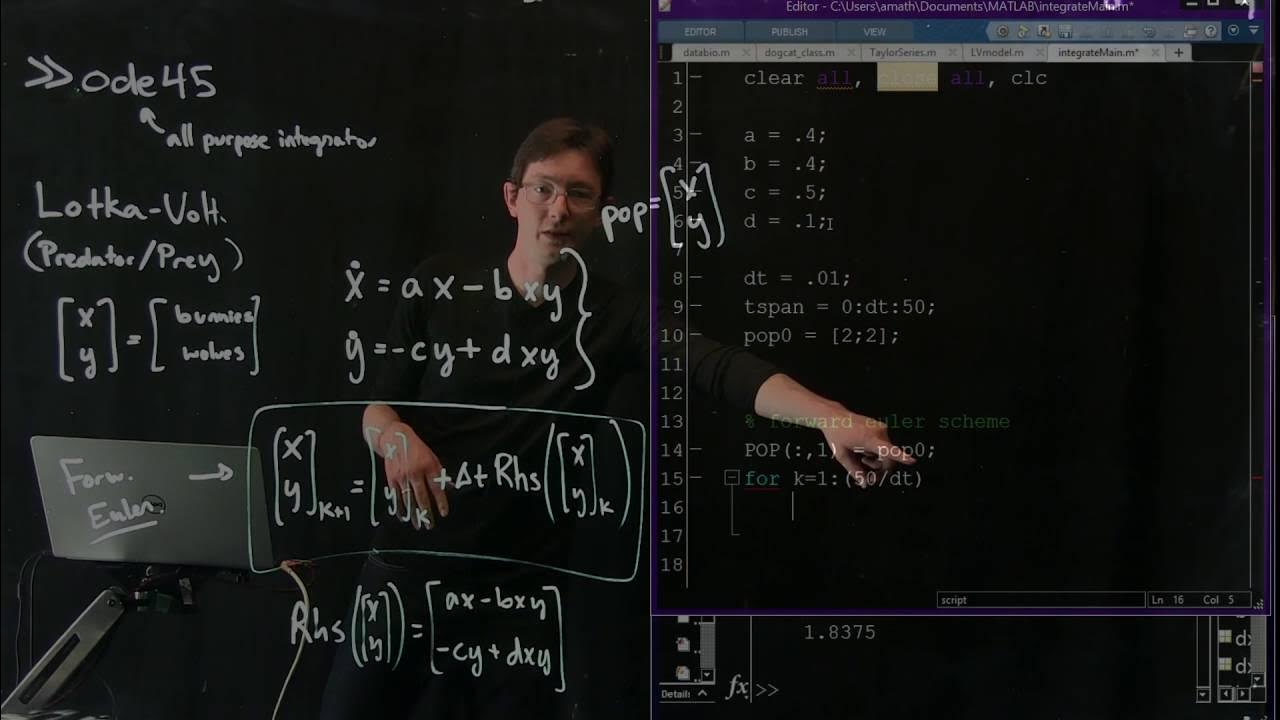 >> ode45
all purpose integrator
Lotka-Volt.
(Predator/Prey)
[x y] = [bunnies wolves]
ẋ = ax - bxy
ẏ = -cy + dxy
pop = [x y]
Forw. →
Euler
[x y]k+1 = [x y]k + Δt Rhs([x y]k)
Rhs([x y]) = [ax - bxy -cy + dxy]
Editor - C:\Users\amath\Documents\MATLAB\integrateMain.m*
EDITOR PUBLISH VIEW
databio.m dogcat_class.m TaylorSeries.m LVmodel.m integrateMain.m* +
1 clear all, close all, clc
2
3 a = .4;
4 b = .4;
5 c = .5;
6 d = .1;
7
8 dt = .01;
9 tspan = 0:dt:50;
10 pop0 = [2;2];
11
12
13 % forward euler scheme
14 POP(:,1) = pop0;
15 for k=1:(50/dt)
16
17
18
script Ln 16 Col 5
1.8375
Details
fx >>
dx
dx